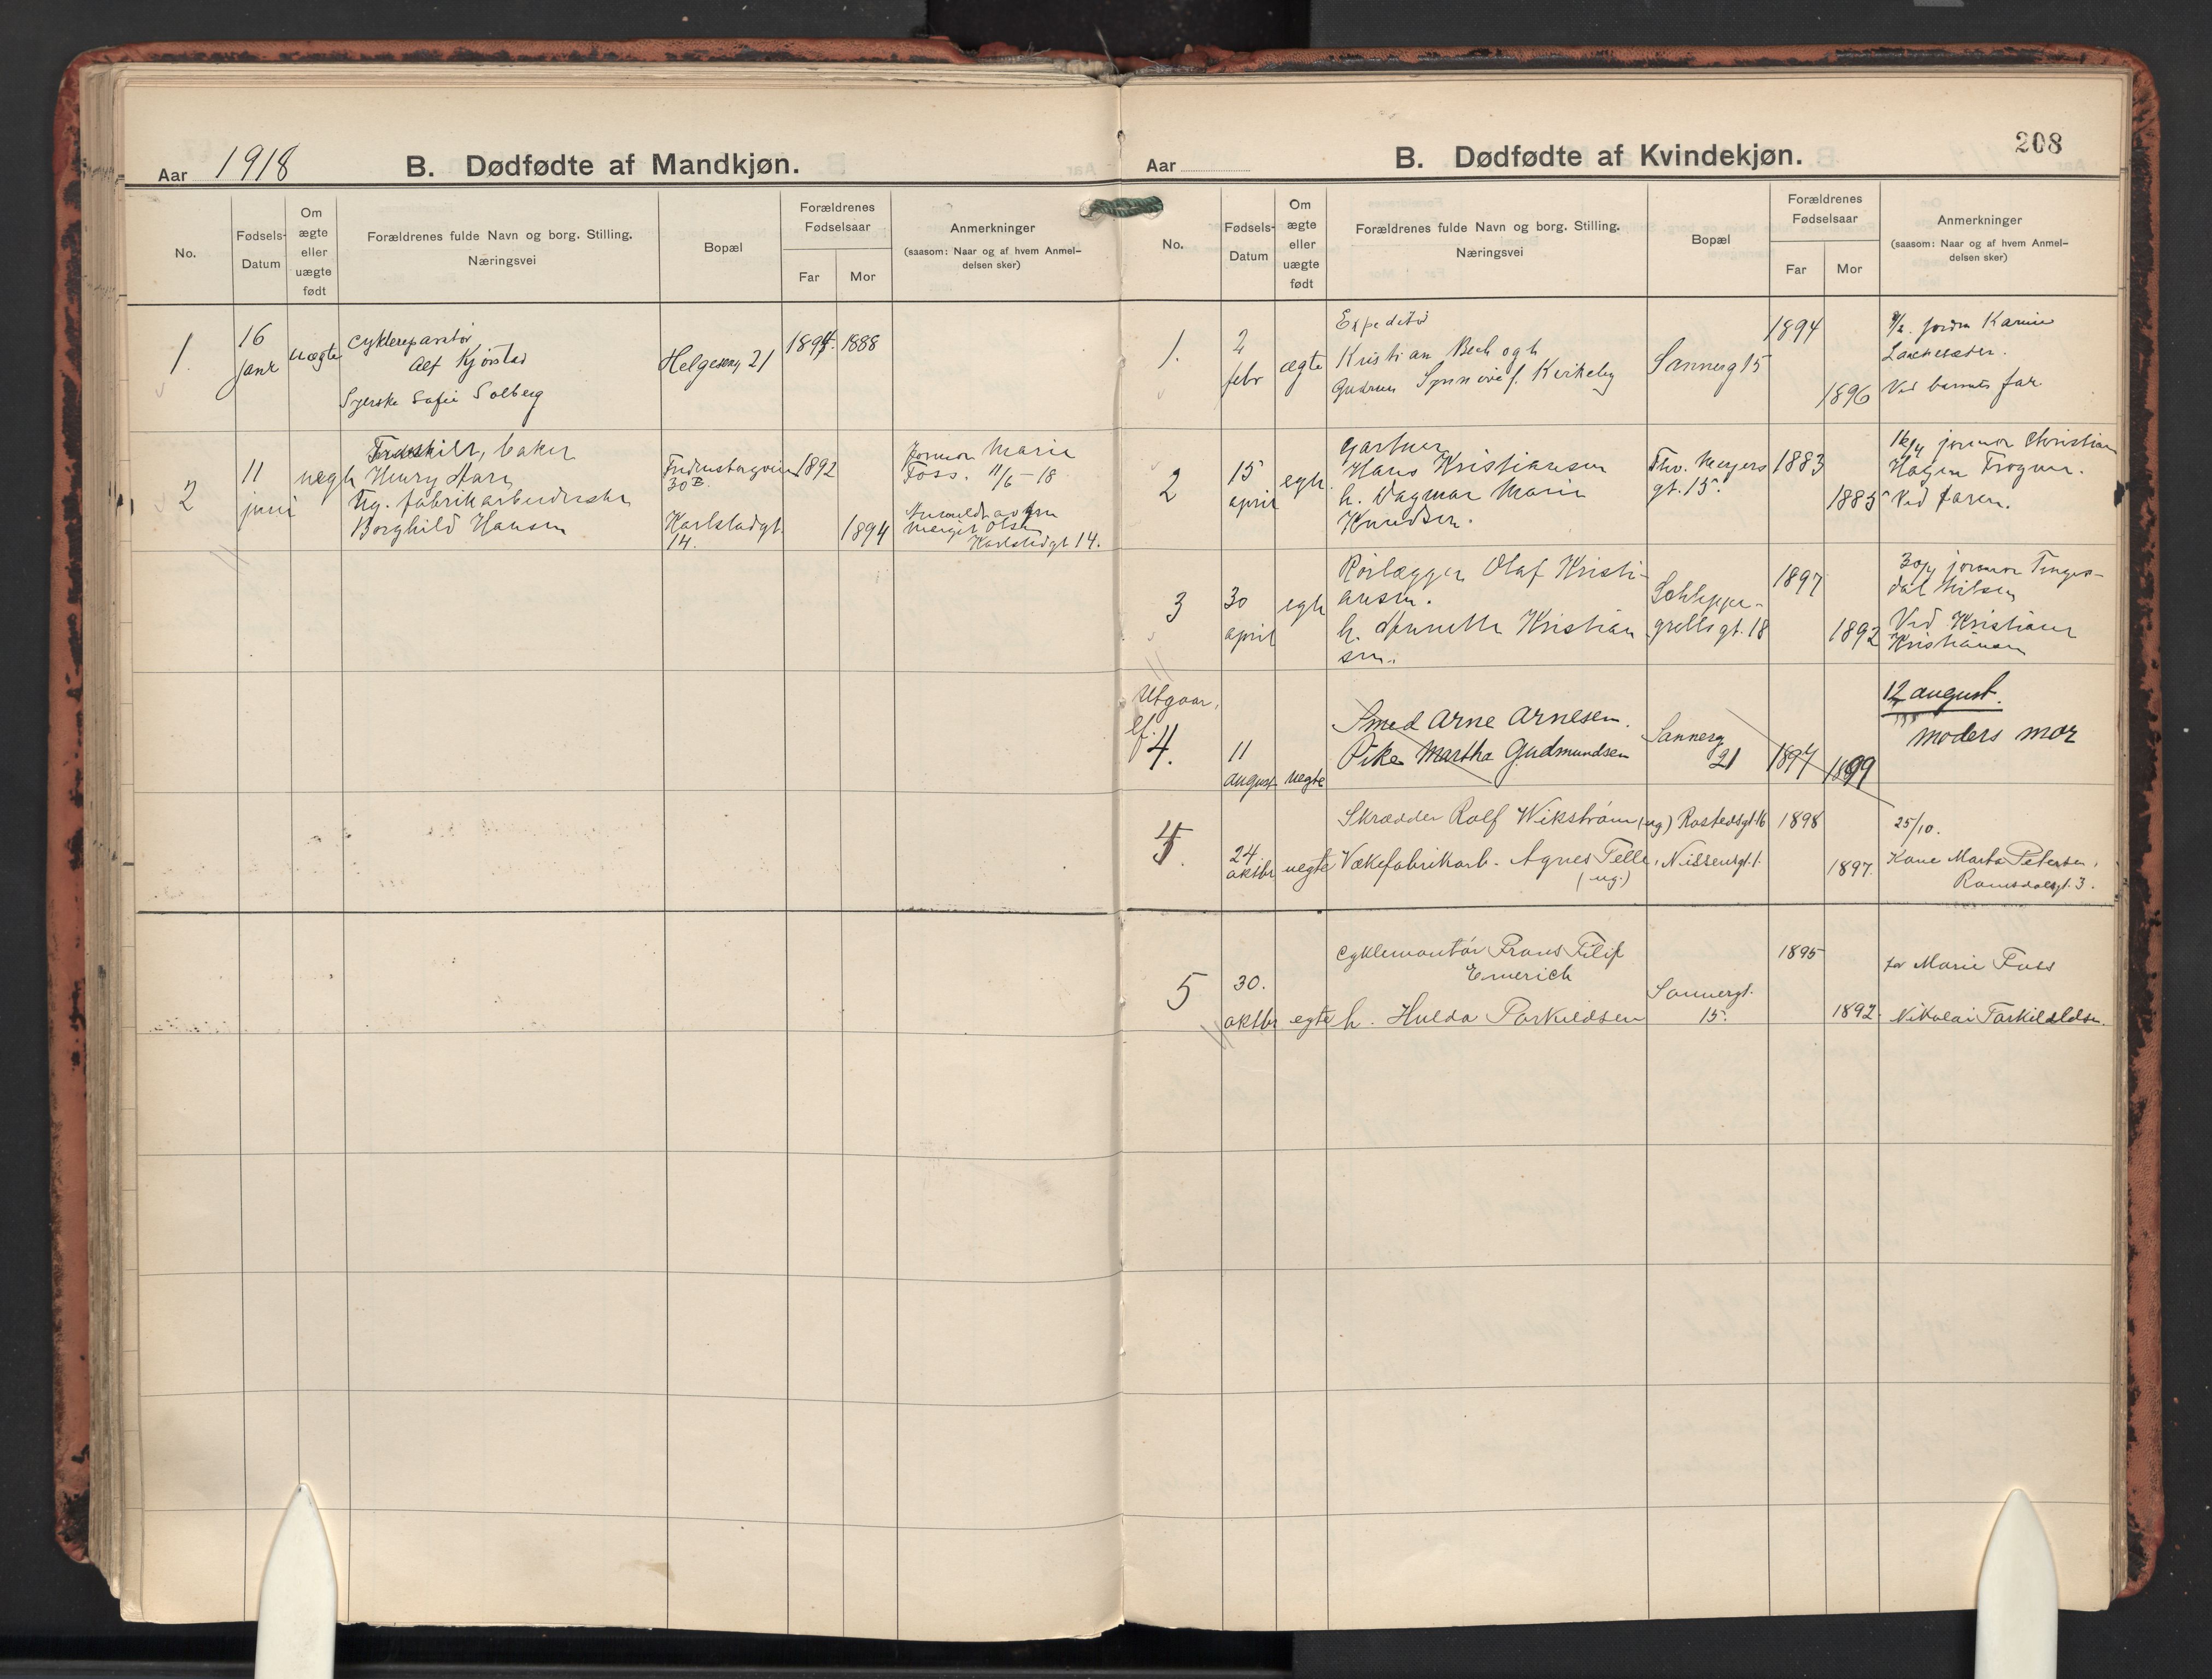 Aar 1918 B. Dødfødte af Mandkjøn.
No.
Fødsels-
Datum
Om
ægte
eller
uægte
født
Forældrenes fulde Navn og borg. Stilling.
Næringsvei
Bopæl
Forældrenes
Fødselsaar
Far Mor
Anmerkninger
(saasom: Naar og af hvem Anmel-
delsen sker)
1.
16
janr
uægte
Cyklereparatør
Alf Kjørstad
Syerske Sofie Solberg
Helgesens 21
1894. 1888
2
11
juni
uegte
baker
Henry
Ug. fabrikarbeiderske
Borghild Hansen
30 B.
Karlstadgt.
14.
1892
1894
Jormor Marie
Foss. 11/6-18
Olsen
Karlstadgt 14.
Aar
B. Dødfødte af Kvindekjøn.
208
No.
Fødsels-
Datum
Om
ægte
eller
uægte
født
Forældrenes fulde Navn og borg. Stilling.
Næringsvei
Bopæl
Forældrenes
Fødselsaar
Far Mor
Anmerkninger
(saasom: Naar og af hvem Anmel-
delsen sker)
1.
2
febr
ægte
Expeditør
Kristian Bech og h
Gudrun Synnøve f. Kirkeby
Sannerg 15
1894
1896
9/2. Jordm Karine
Ved barnets far
2
15
april
egte
Gartner
Hans Kristiansen
h. Dagmar Marie
Knudsen.
Thv. Meyers
gt. 15.
1883
1885
jormor Christian
Hagen Frogner.
Ved faren.
3
30
april
egte
Rørlægger Olaf Kristi-
ansen.
h. Annette Kristian
sen.
Schleppe-
grellsgt. 18
1897
1892
30/4 jormor Tinges-
dal Nilsen
Ved Kristiane
Kristiansen
Utgaar,
4.
11
august
uegte
Smed Arne Arnesen.
Pike Martha Gudmundsen
Sannerg
21
1897
1899
12 august.
moders mor
4.
24.
oktbr
uegte
Skrædder Rolf Wikstrøm (ug) Rostedsgt 16
Vækefabrikarb. Agnes Telle, Nissensgt. 1.
(ug.)
1898
1897.
25/10.
Kone Marta Petersen,
Romsdalsgt. 3.
5
30.
oktbr
egte
Cyklemontør Frans Filip
Emerich
h. Hulda Torkildsen
Sannergt.
15.
1895
1892.
for Marie Foss
Nikolai Torkildsen.